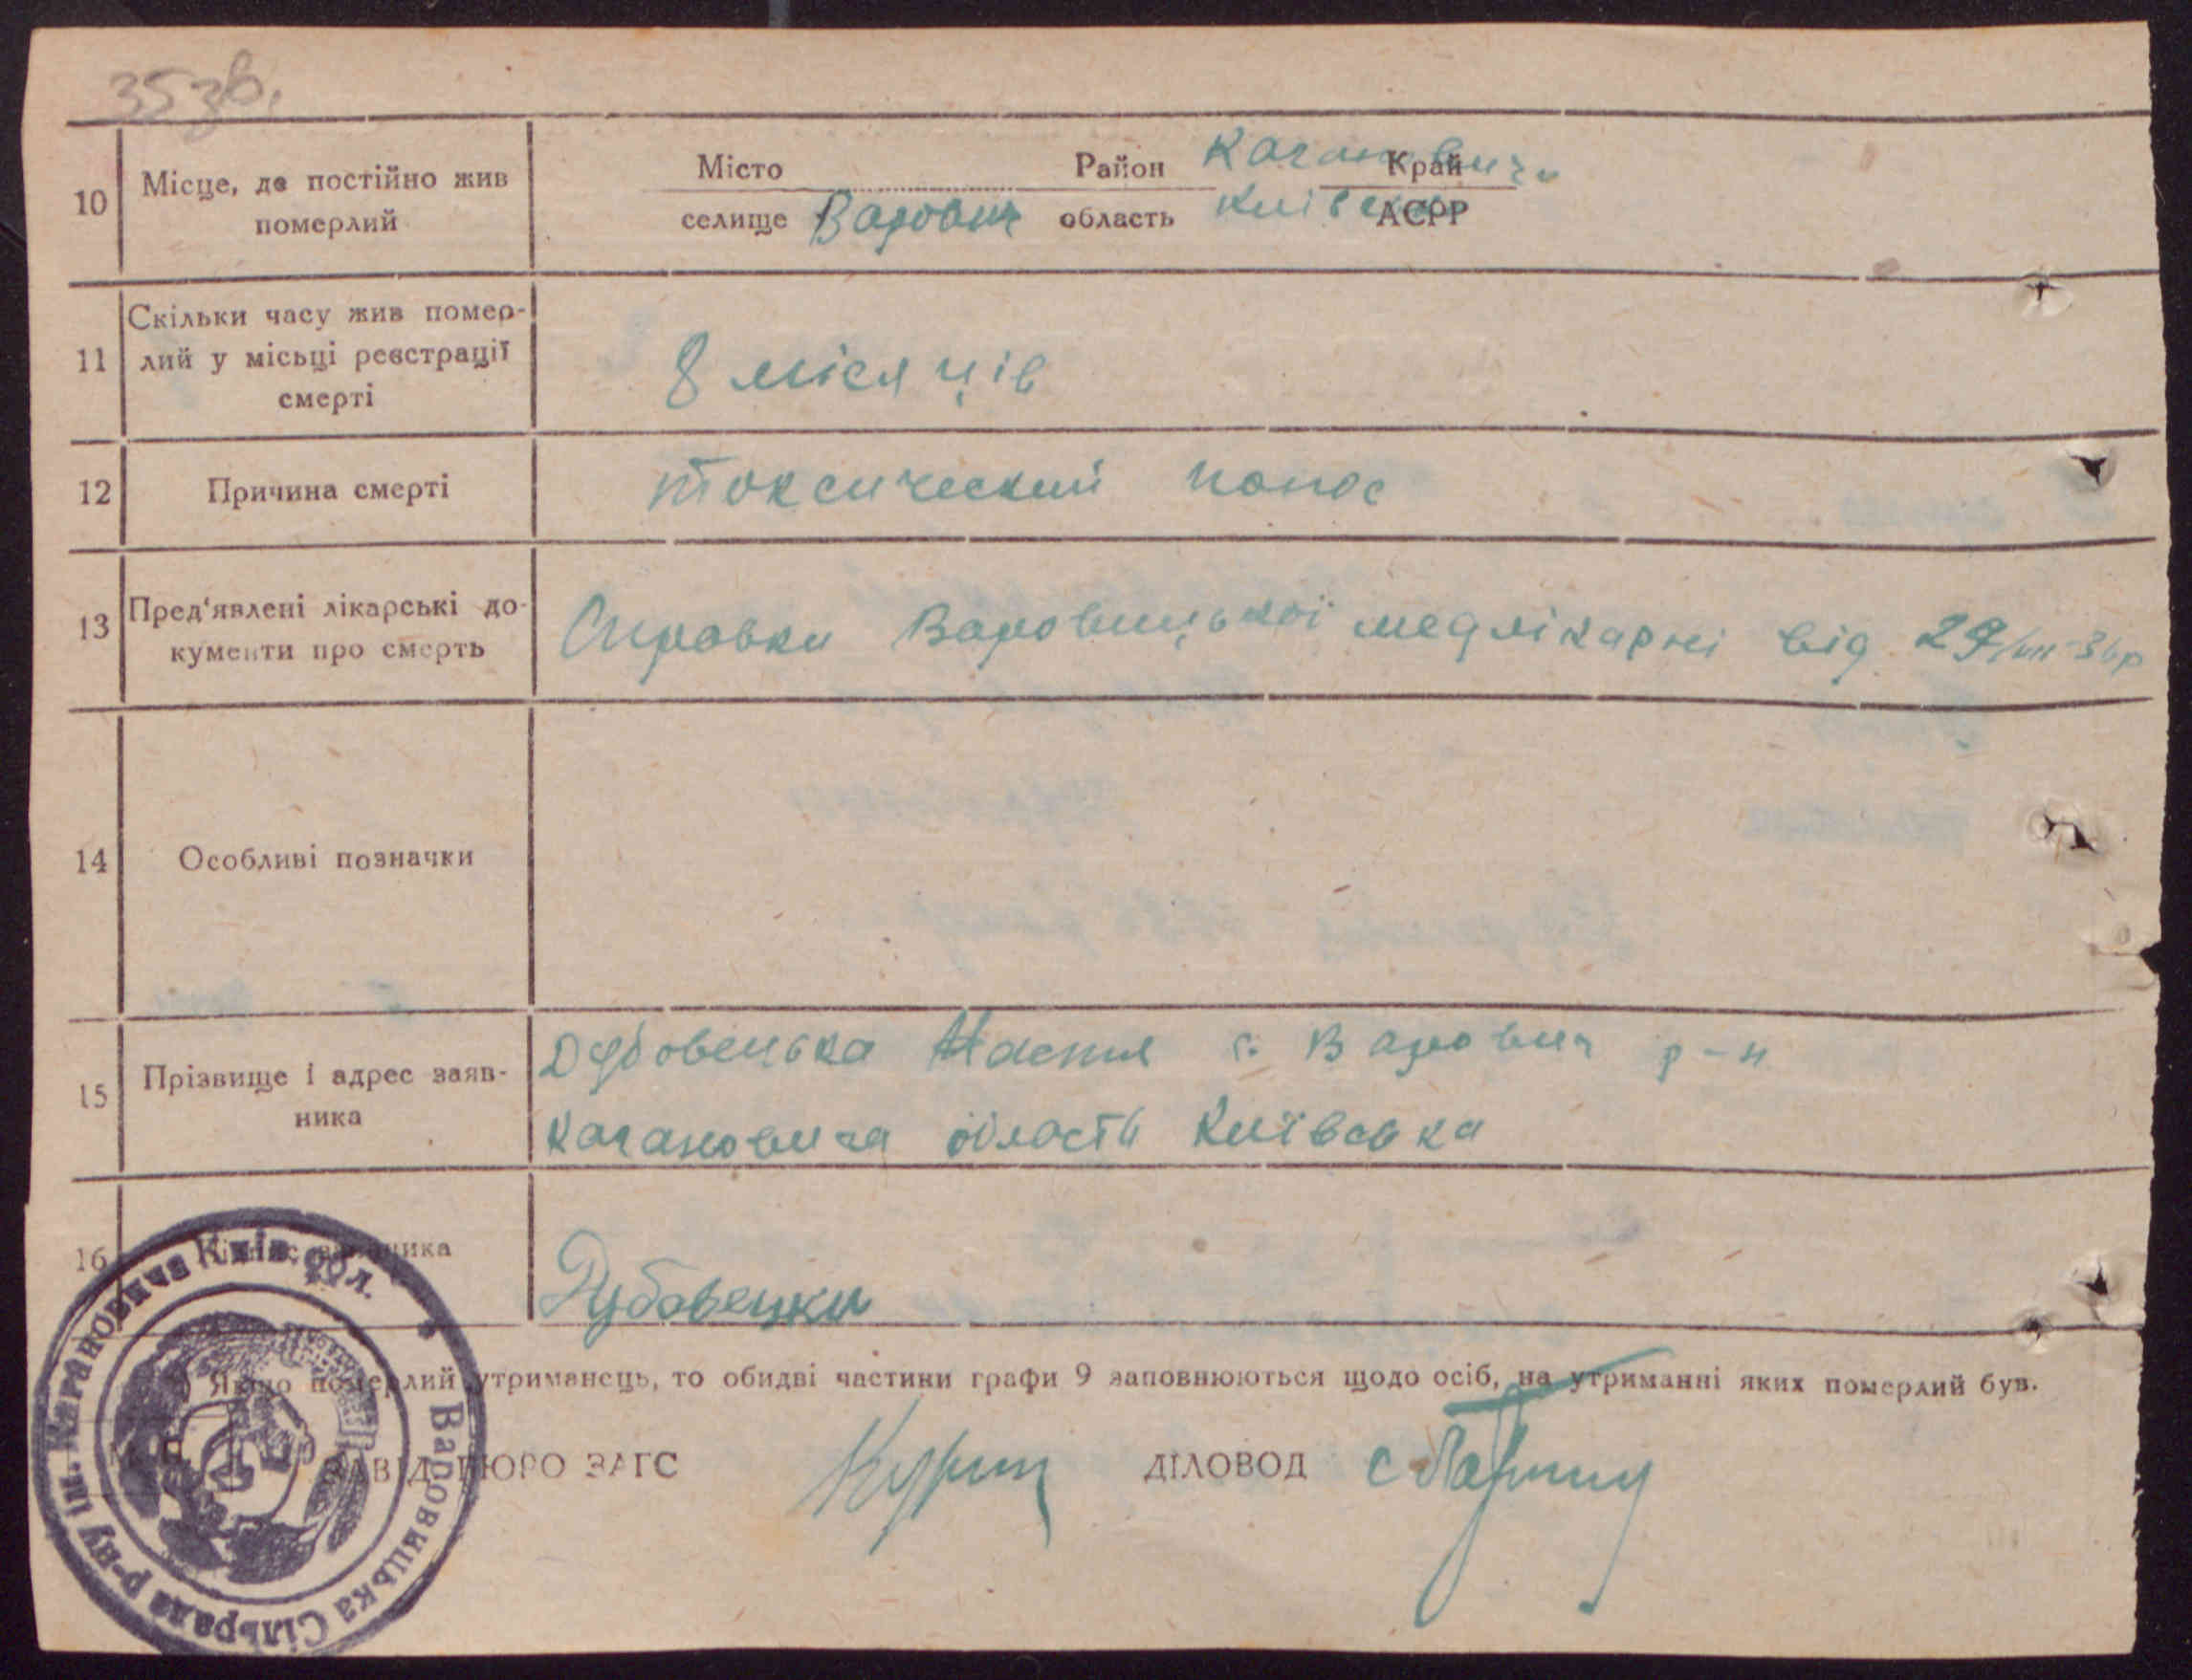 35зв.
10 Місце, де постійно жив померлий
Місто Район Кагановича Край
селище Варовичі область Київська АСРР
11 Скільки часу жив помер-
лий у місьці реєстрації
смерті
8 місяців
12 Причина смерті
токсический понос
13 Пред'явлені лікарські до-
кументи про смерть
Справка Варовицької медлікарні від 29/VII-36р
14 Особливі позначки
15 Прізвище і адрес заяв-
ника
Дубовецька Настя с. Варовичі р-н
Кагановича область Київська
16
Дубовецки
Якщо померлий утриманець, то обидві частини графи 9 заповнюються щодо осіб, на утриманні яких померлий був.
ЗАВІД. БЮРО ЗАГС ДІЛОВОД
Варовицька Сільрада р-ну ім. Кагановича Київ. обл.